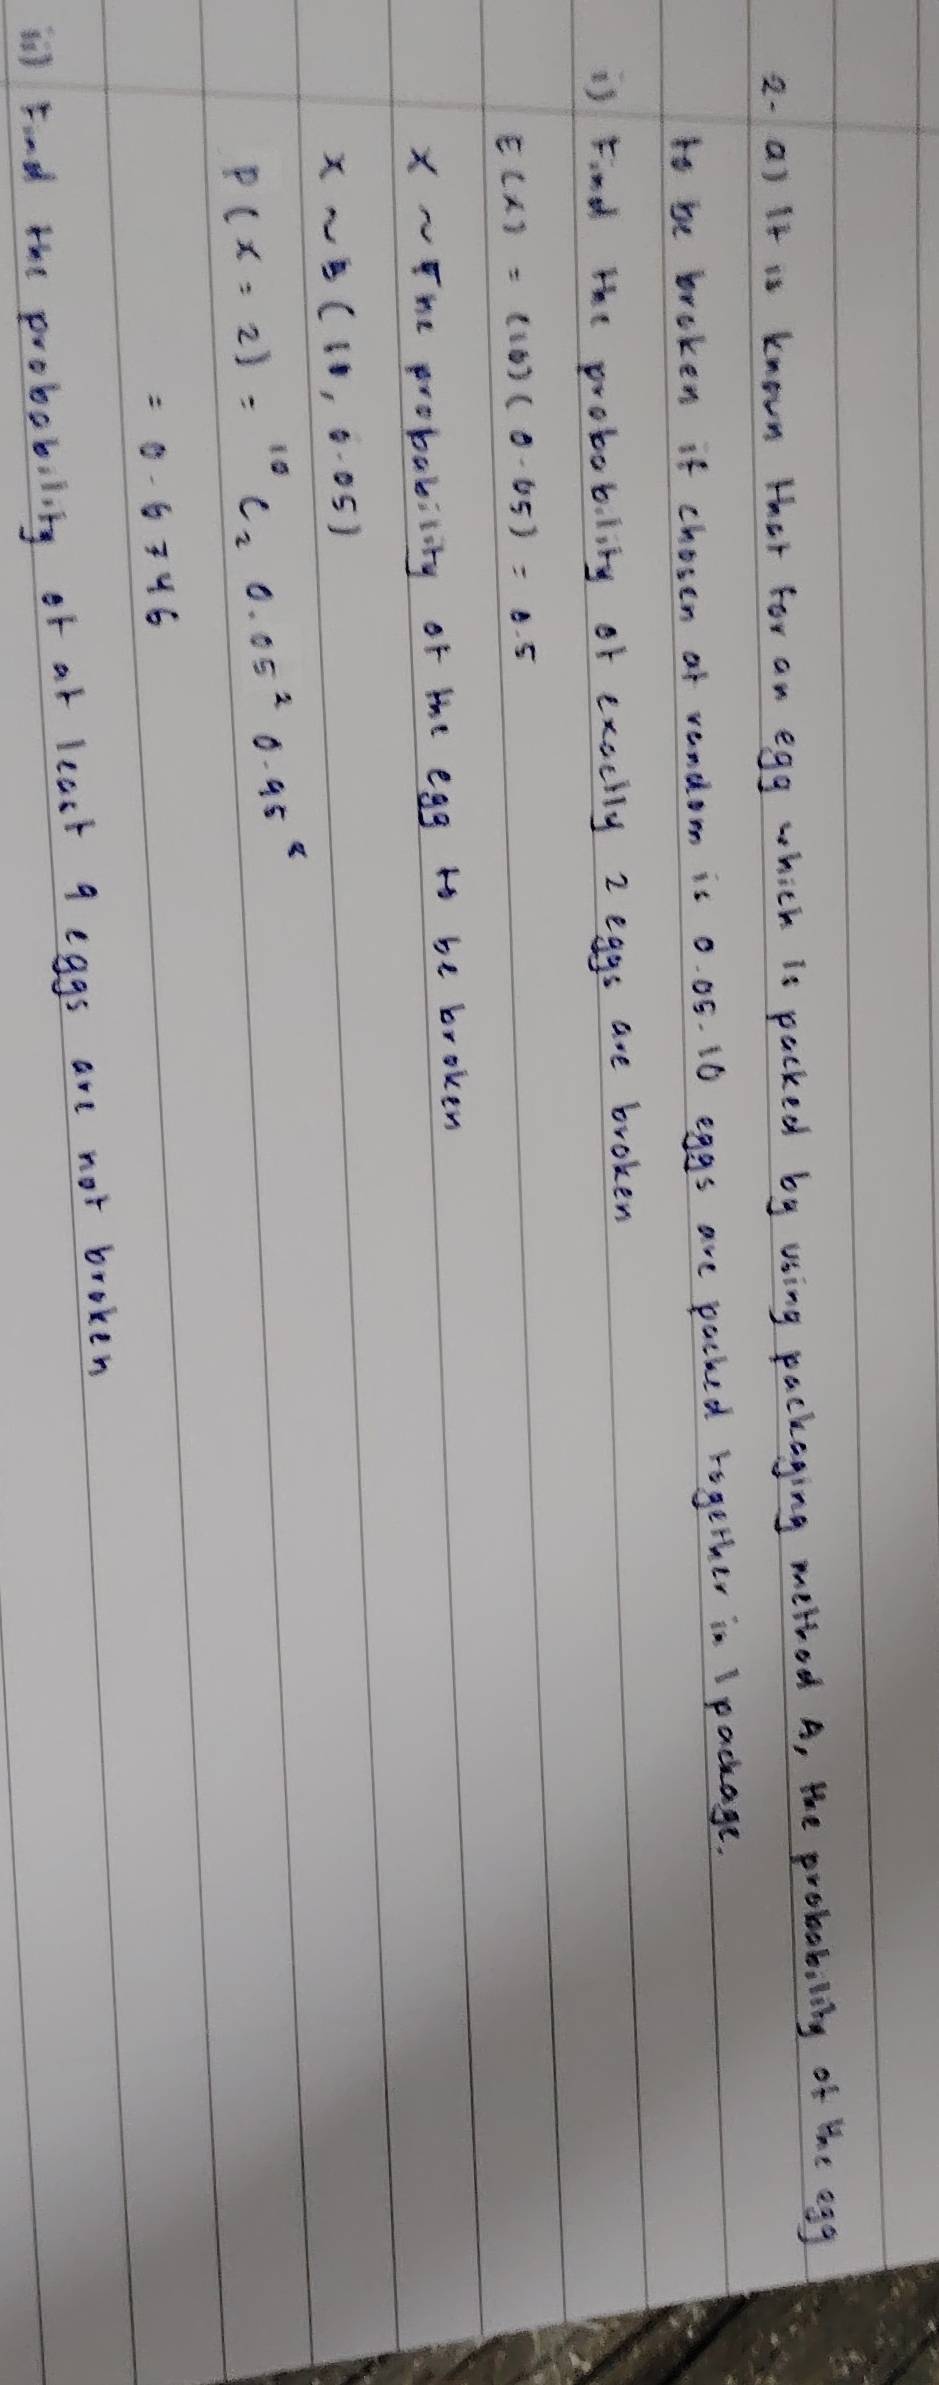 2. a) It is known that for an egg which is packed by using packaging method A, the probability of the egg
to be broken if chosen at random is 0.05. 10 eggs are packed together in 1 package.
i) Find the probability of exactly 2 eggs are broken
E(x) = (10)(0.05) = 0.5
X ~ The probability of the egg to be broken
X ~ B(10, 0.05)
P(X = 2) = ¹⁰C₂ 0.05² 0.95⁸
= 0.0746
ii) Find the probability of at least 9 eggs are not broken